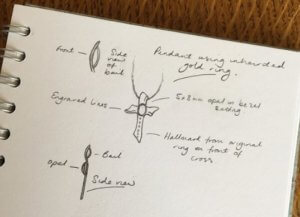 Front
Side
view
of
bail
Pendant using inherited
gold ring.
Engraved lines
5x3mm opal in bezel
setting
Hallmark from original
ring on front of
cross
Bail
opal
Side view